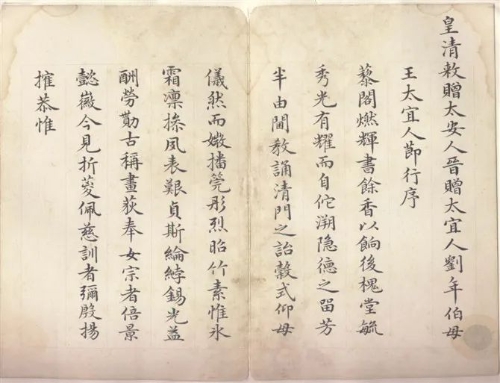 皇清敕贈太安人晉贈太宜人劉年伯母
王太宜人節行序
藜閣燃輝書餘香以餉後槐堂毓
秀光有耀而自佗溯隐德之留芳
半由閫教誦清門之詒穀式仰母
儀然而媺播筦彤烈昭竹素惟氷
霜凛摻夙表艱貞斯綸綍錫光益
酬勞勩古稱畫荻奉女宗者倍景
懿徽今見折葼佩慈訓者彌殷揚
搉恭惟